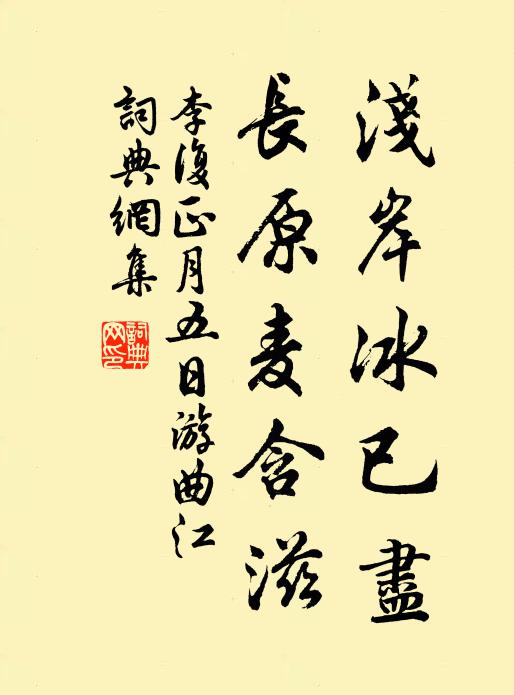 淺岸冰已盡
長原麦含滋
李復正月五日游曲江
詞典網集
詞典网印